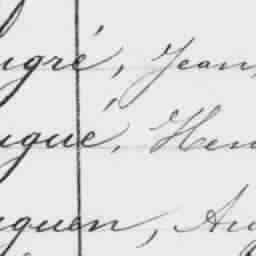 ugré, Jean,
ugué, Hen
guen, Au